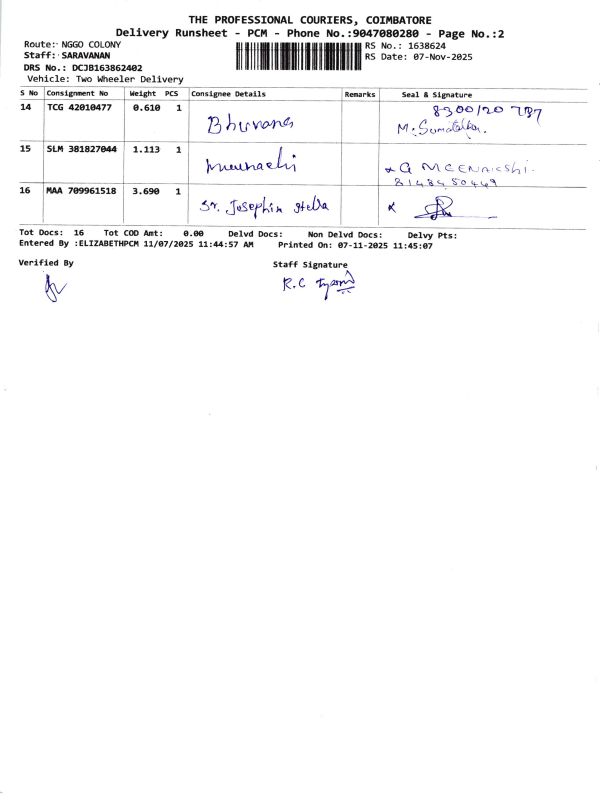 THE PROFESSIONAL COURIERS, COIMBATORE
Delivery Runsheet - PCM - Phone No.:9047080280 - Page No.:2
Route: NGGO COLONY
RS No.: 1638624
Staff: SARAVANAN
RS Date: 07-Nov-2025
DRS No.: DCJB163862402
Vehicle: Two Wheeler Delivery
S No Consignment No Weight PCS Consignee Details Remarks Seal & Signature
14 TCG 42010477 0.610 1 Bhuvanes
M. 
15 SLM 381827044 1.113 1 G MEENAKSHI.
8148450449
16 MAA 709961518 3.690 1 Sr. Josephin Stella
Tot Docs: 16 Tot COD Amt: 0.00 Delvd Docs: Non Delvd Docs: Delvy Pts:
Entered By :ELIZABETHPCM 11/07/2025 11:44:57 AM Printed On: 07-11-2025 11:45:07
Verified By Staff Signature
R.C